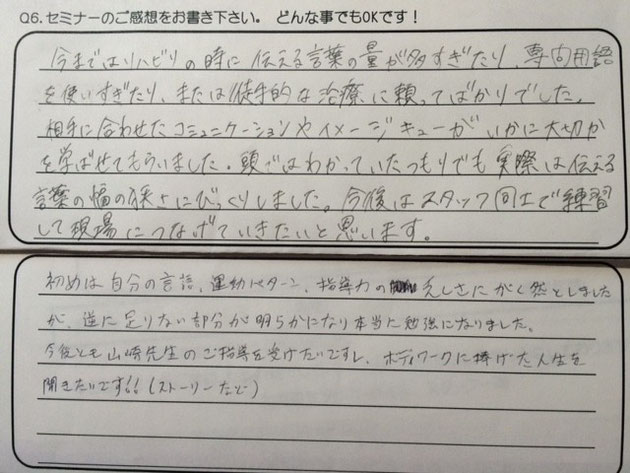 Q6.セミナーのご感想をお書き下さい。 どんな事でもOKです！
今まではリハビリの時に伝える言葉の量が多すぎたり、専門用語
を使いすぎたり、または徒手的な治療に頼ってばかりでした。
相手に合わせたコミュニケーションやイメージキューがいかに大切か
を学ばせてもらいました。頭ではわかっていたつもりでも実際は伝える
言葉の幅の狭さにびっくりしました。今後はスタッフ同士で練習
して現場につなげていきたいと思います。
初めは自分の言語、運動パターン、指導力の乏しさにがく然としました
が、逆に足りない部分が明らかになり本当に勉強になりました。
今後とも山崎先生のご指導を受けたいですし、ボディワークに捧げた人生を
聞きたいです!!(ストーリーなど)